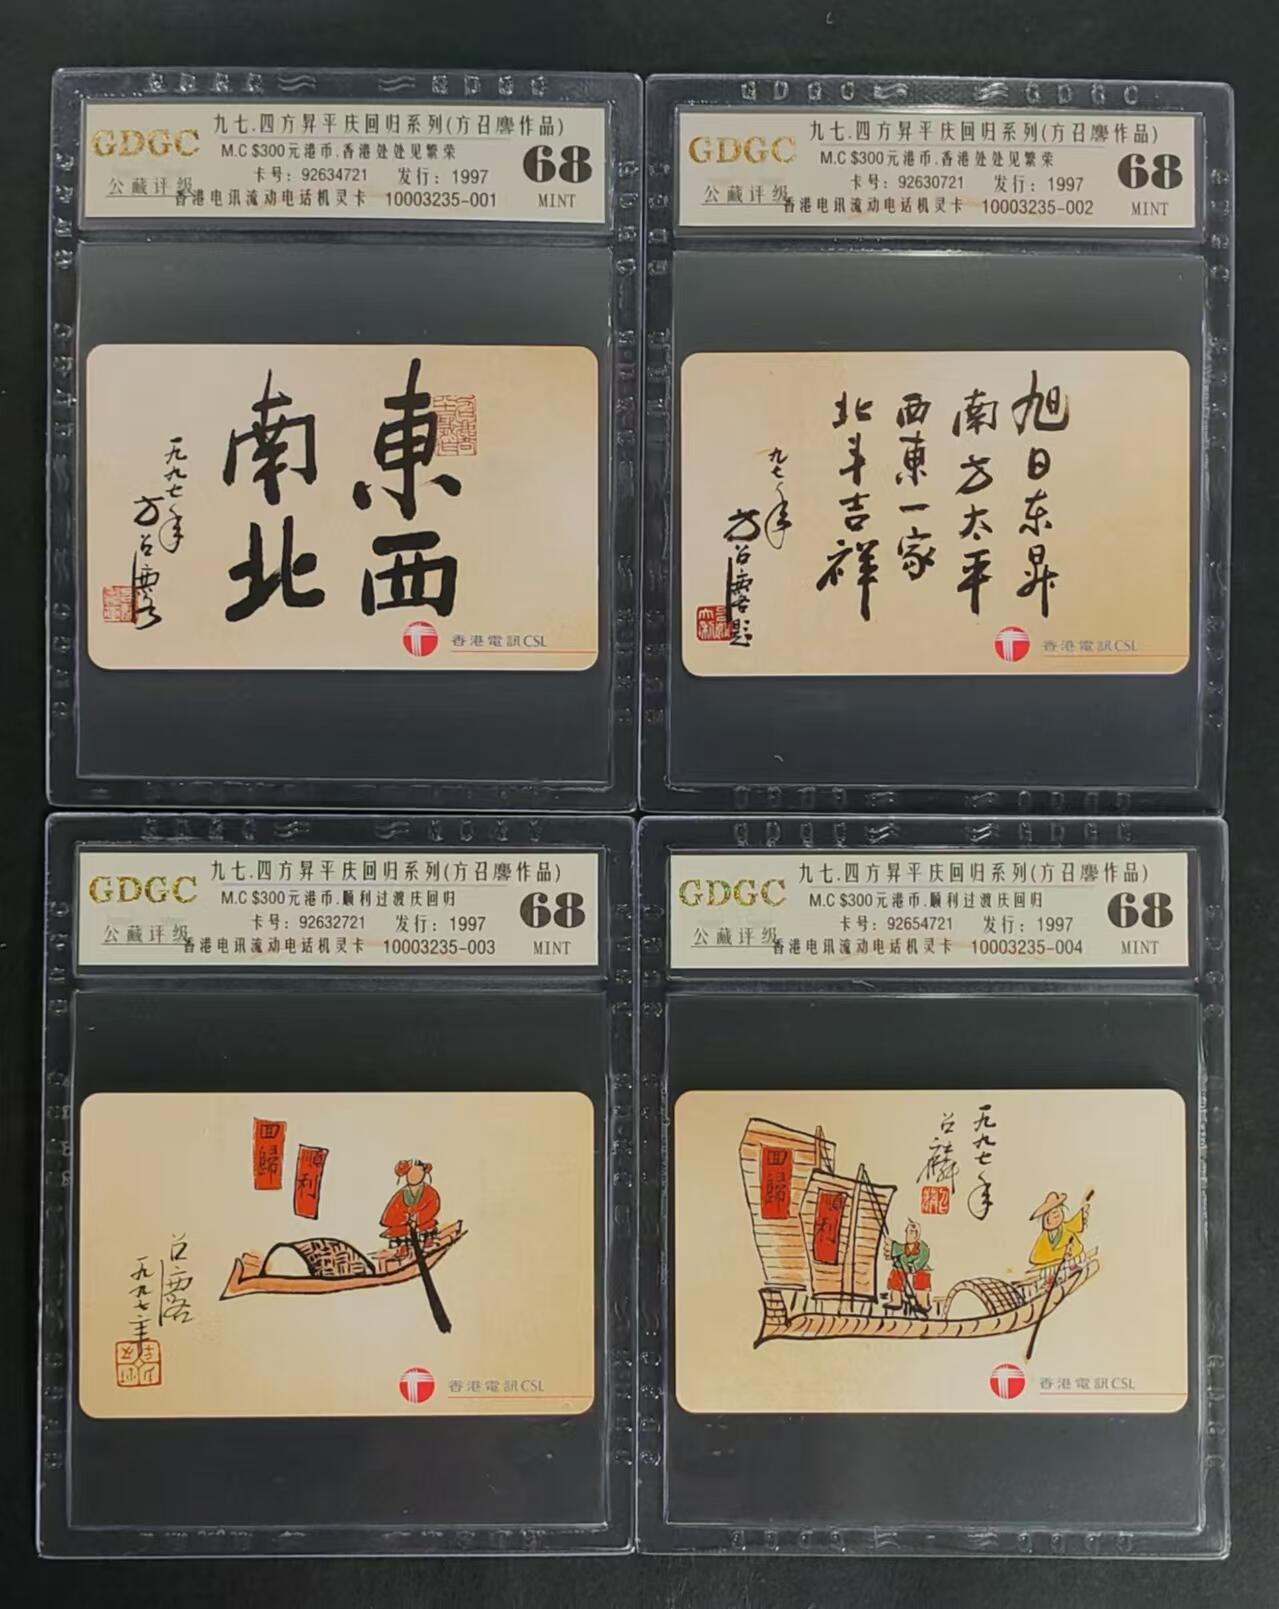 九七.四方昇平庆回归系列(方召麐作品)
GDGC
M.C $300元港币.香港处处见繁荣
68
卡号: 92634721 发行: 1997
公藏评级
香港电讯流动电话机灵卡 10003235-001
MINT
東西
南北
一九九七年
方召麐
香港電訊CSL
九七.四方昇平庆回归系列(方召麐作品)
GDGC
M.C $300元港币.香港处处见繁荣
68
卡号: 92630721 发行: 1997
公藏评级
香港电讯流动电话机灵卡 10003235-002
MINT
旭日东昇
南方太平
西東一家
北斗吉祥
九七年
方召麐題
香港電訊CSL
九七.四方昇平庆回归系列(方召麐作品)
GDGC
M.C $300元港币.顺利过渡庆回归
68
卡号: 92632721 发行: 1997
公藏评级
香港电讯流动电话机灵卡 10003235-003
MINT
順利
回歸
召麐
一九九七年
香港電訊CSL
九七.四方昇平庆回归系列(方召麐作品)
GDGC
M.C $300元港币.顺利过渡庆回归
68
卡号: 92654721 发行: 1997
公藏评级
香港电讯流动电话机灵卡 10003235-004
MINT
一九九七年
召麐
順利
回歸
香港電訊CSL